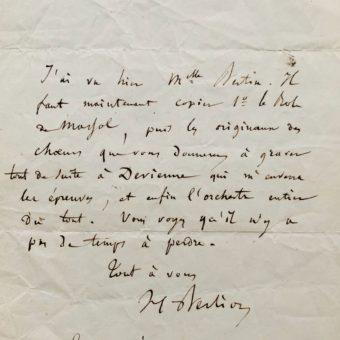 J'ai vu hier Melle Bertin. Il
faut maintenant copier 1º le Rôle
de Massol, puis les originaux des
chœurs que vous donnerez à graver
tout de suite à Devienne qui m'enverra
les épreuves; et enfin l'orchestre entier
du tout. Vous voyez qu'il n'y a
pas de temps à perdre.
Tout à vous
H Berlioz